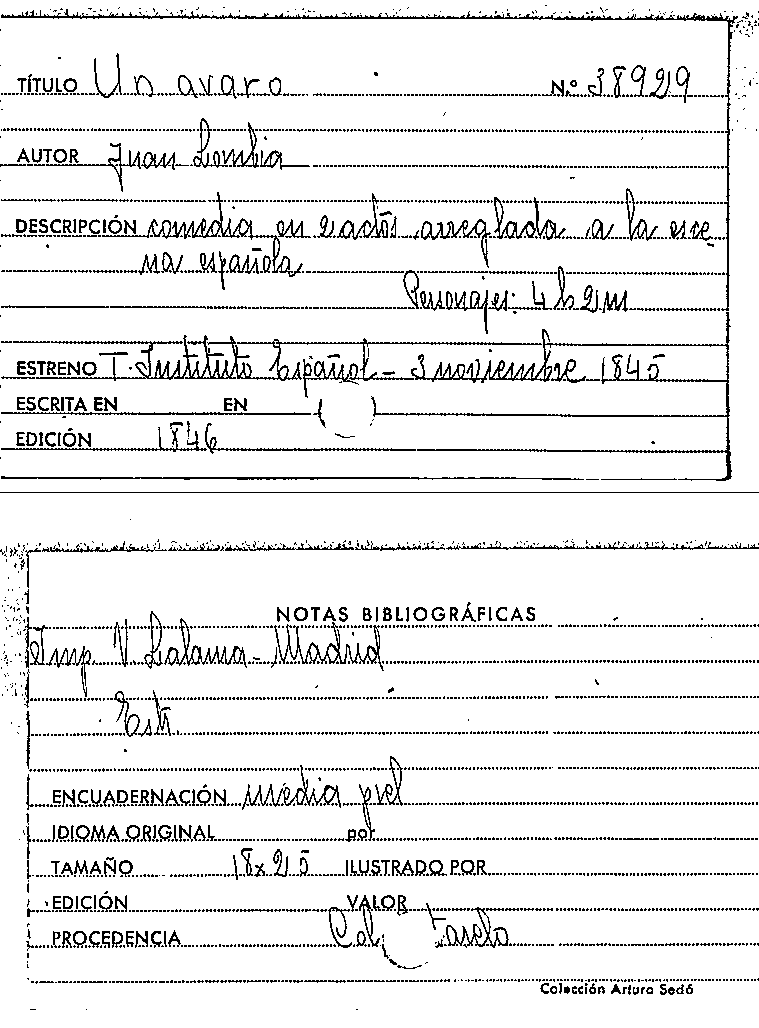 TÍTULO Un avaro N.º 38929
AUTOR Juan Lombia
DESCRIPCIÓN comedia en 2 actos arreglada a la esce
na española
Personajes: 4 h 2 m
ESTRENO T. Instituto Español - 3 noviembre 1845
ESCRITA EN EN ( )
EDICIÓN 1846
NOTAS BIBLIOGRÁFICAS
Imp. V. Lalama - Madrid
Estr.
ENCUADERNACIÓN media piel
IDIOMA ORIGINAL por
TAMAÑO 18x25 ILUSTRADO POR
EDICIÓN VALOR
PROCEDENCIA Col.
Colección Arturo Sedó